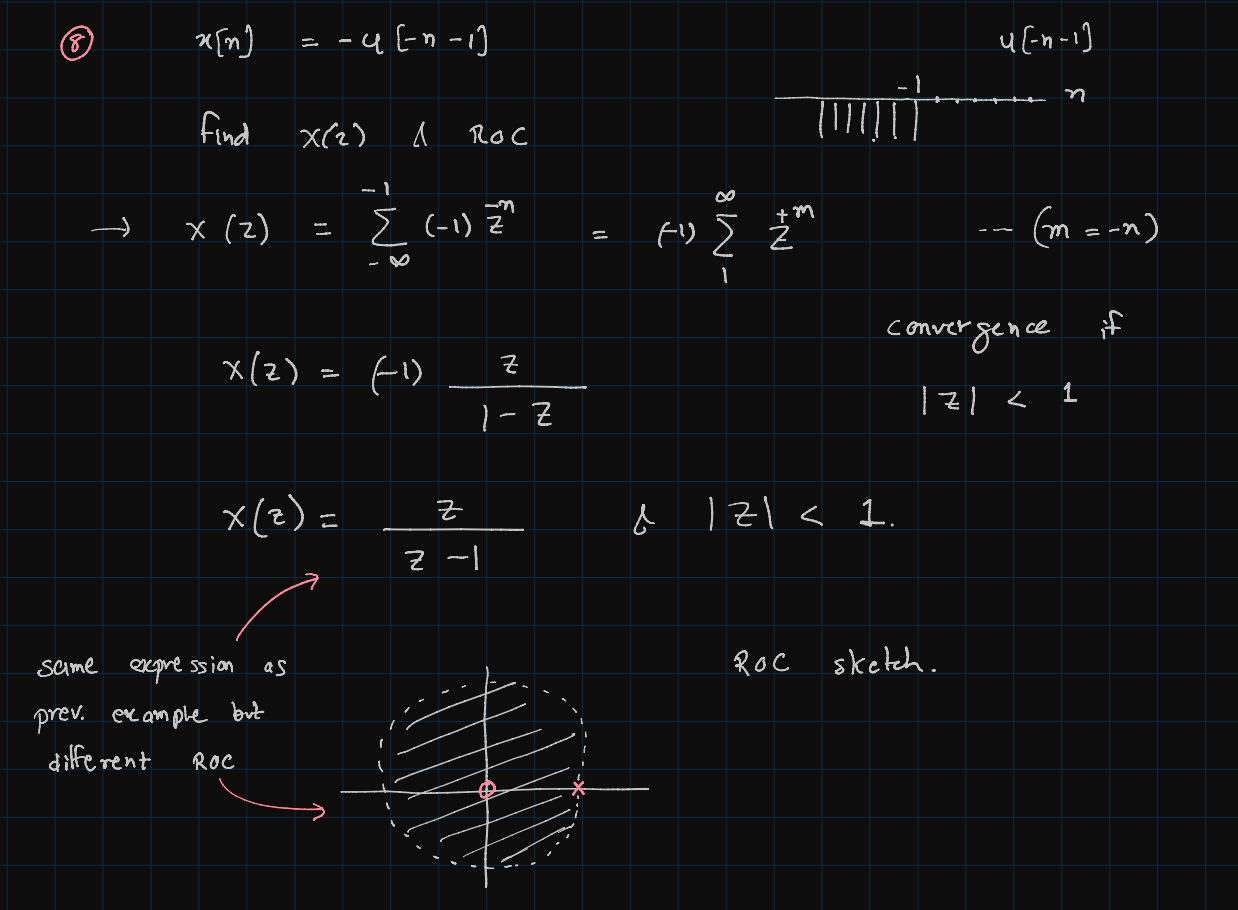 ⑧ x[n] = -u[-n-1]
u[-n-1]
-1
n
find X(z) & ROC
→ X(z) = ∑_{-∞}^{-1} (-1) z^{-n} = (-1) ∑_{1}^{∞} z^{+m} --- (m = -n)
convergence if
X(z) = (-1) z / (1 - z)
|z| < 1
X(z) = z / (z - 1) & |z| < 1.
same expression as
prev. example but
different ROC
ROC sketch.